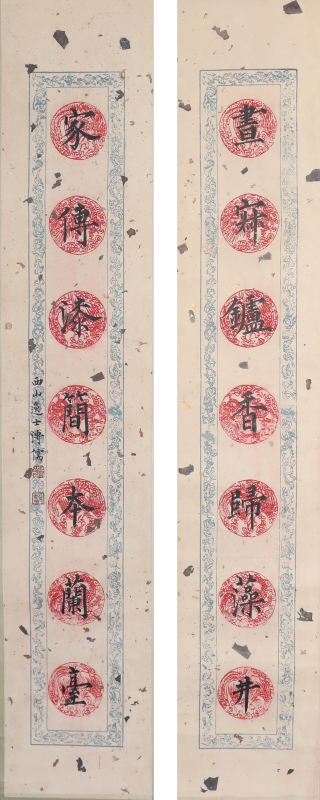 晝寂鑪香歸藻井
家傳漆簡本蘭臺
西山逸士溥儒